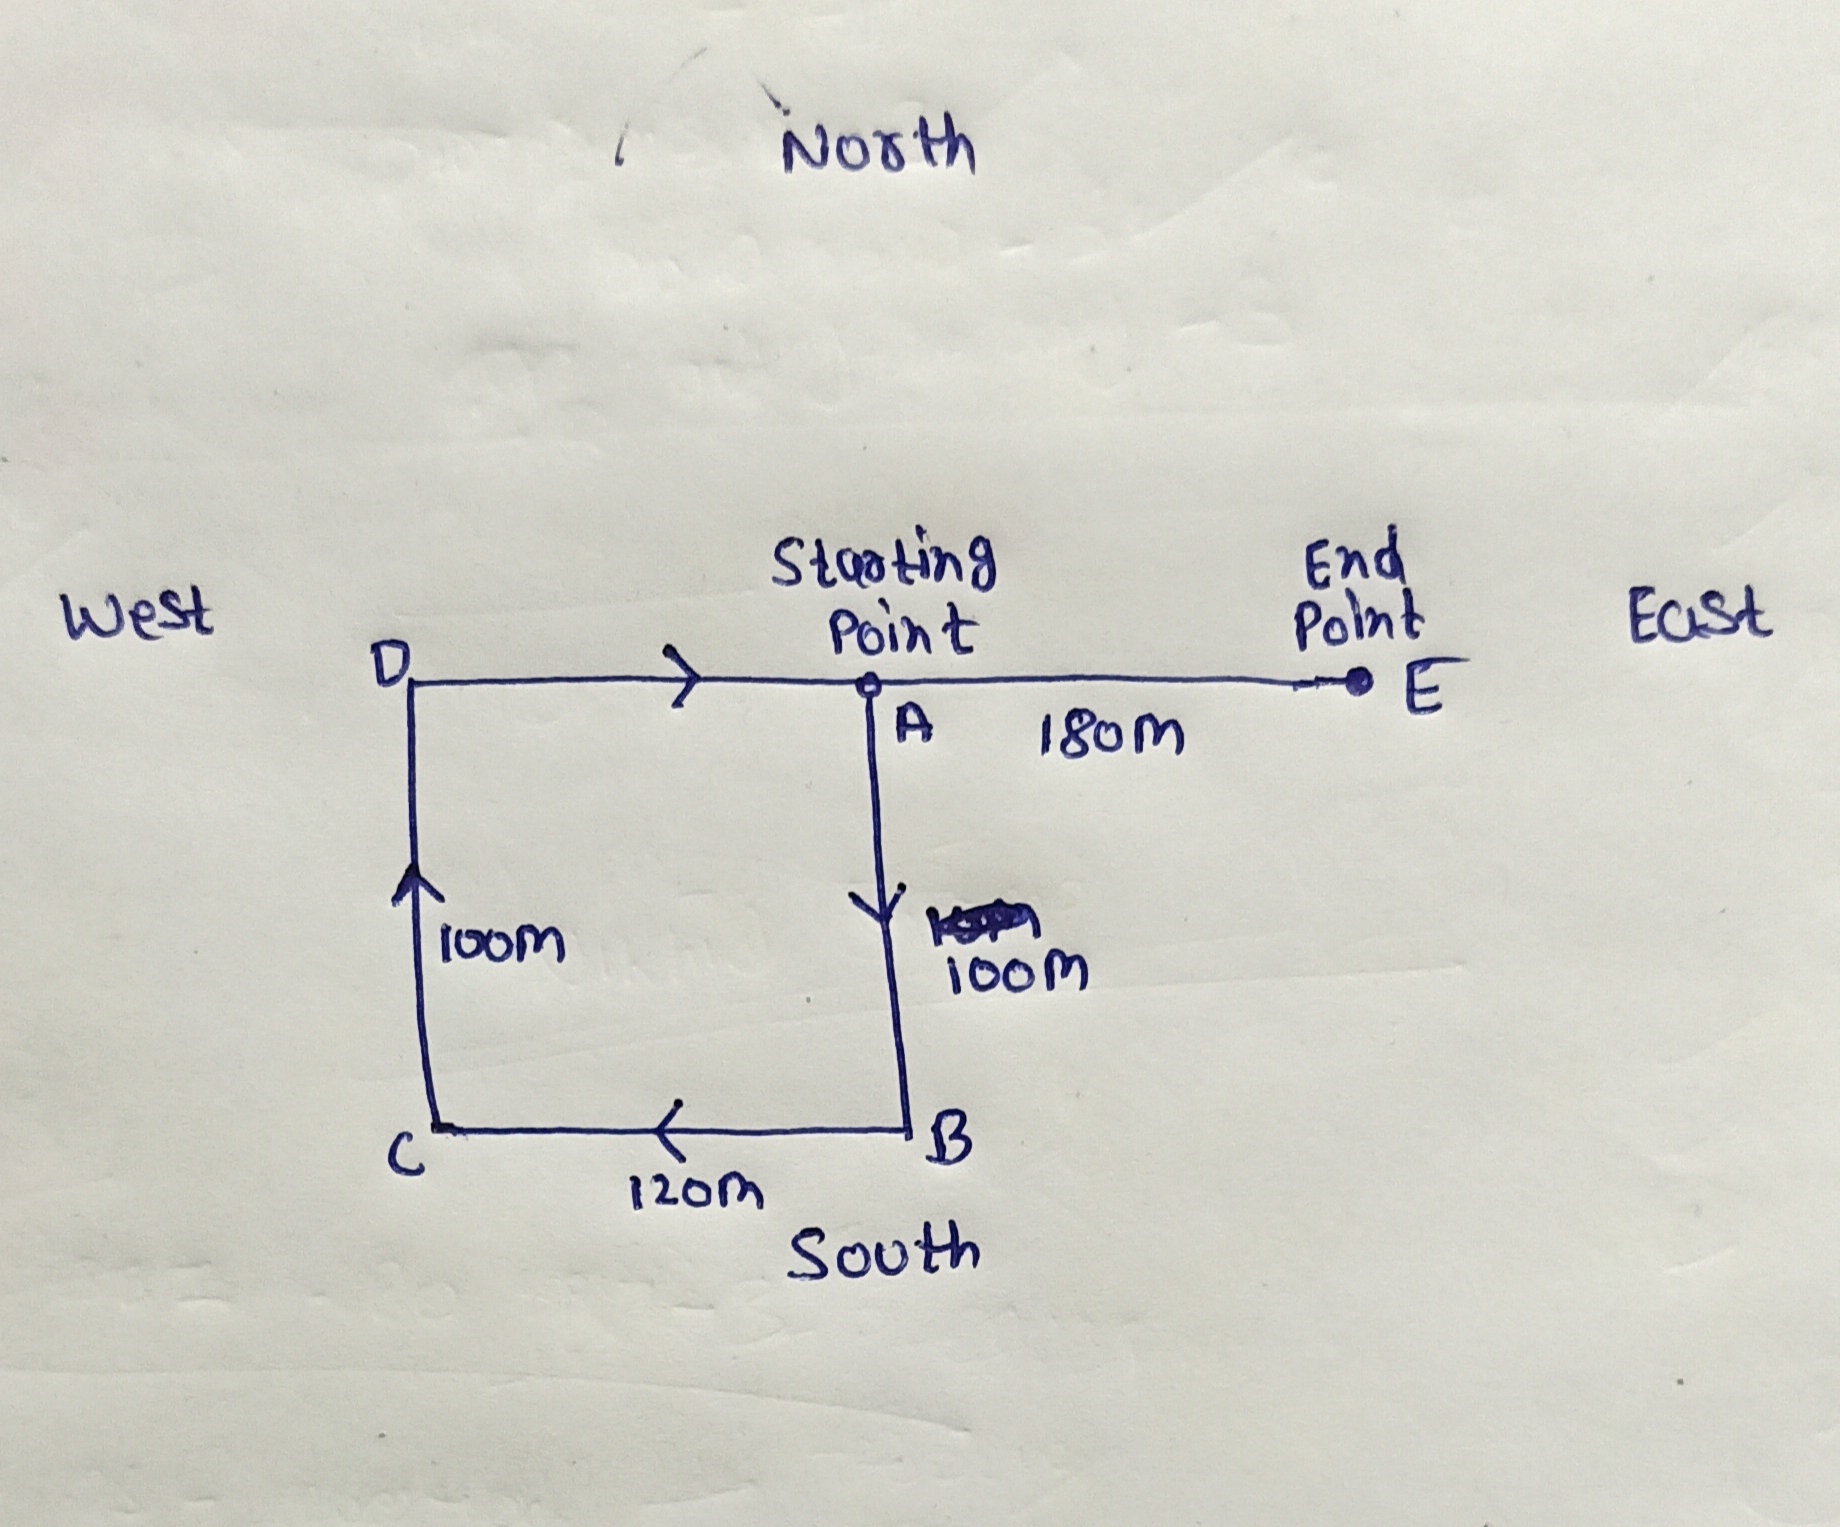 North
Starting
Point
End
Point
West
East
D
E
A
180m
100m
100m
C
B
120m
South